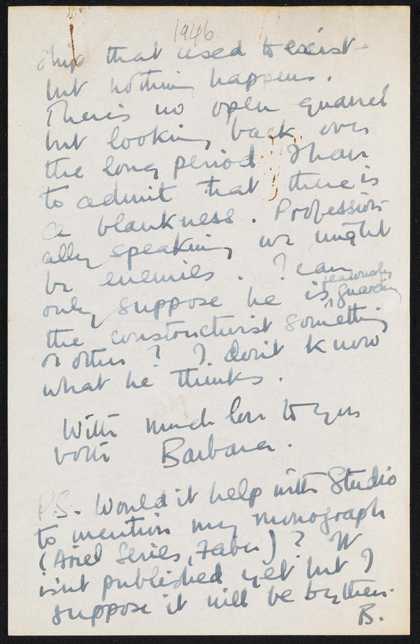 1946
ship that used to exist
but nothing happens.
There's no open quarrel
but looking back over
the long period I have
to admit that there is
a blankness. Profession-
ally speaking we might
be enemies. I can
only suppose he is jealously guarding
the constructivist something
or other? I don't know
what he thinks.
With much love to you
both Barbara.
P.S. Would it help with Studio
to mention my monograph
(Ariel Series, Faber)? It
isn't published yet but I
suppose it will be by then.
B.